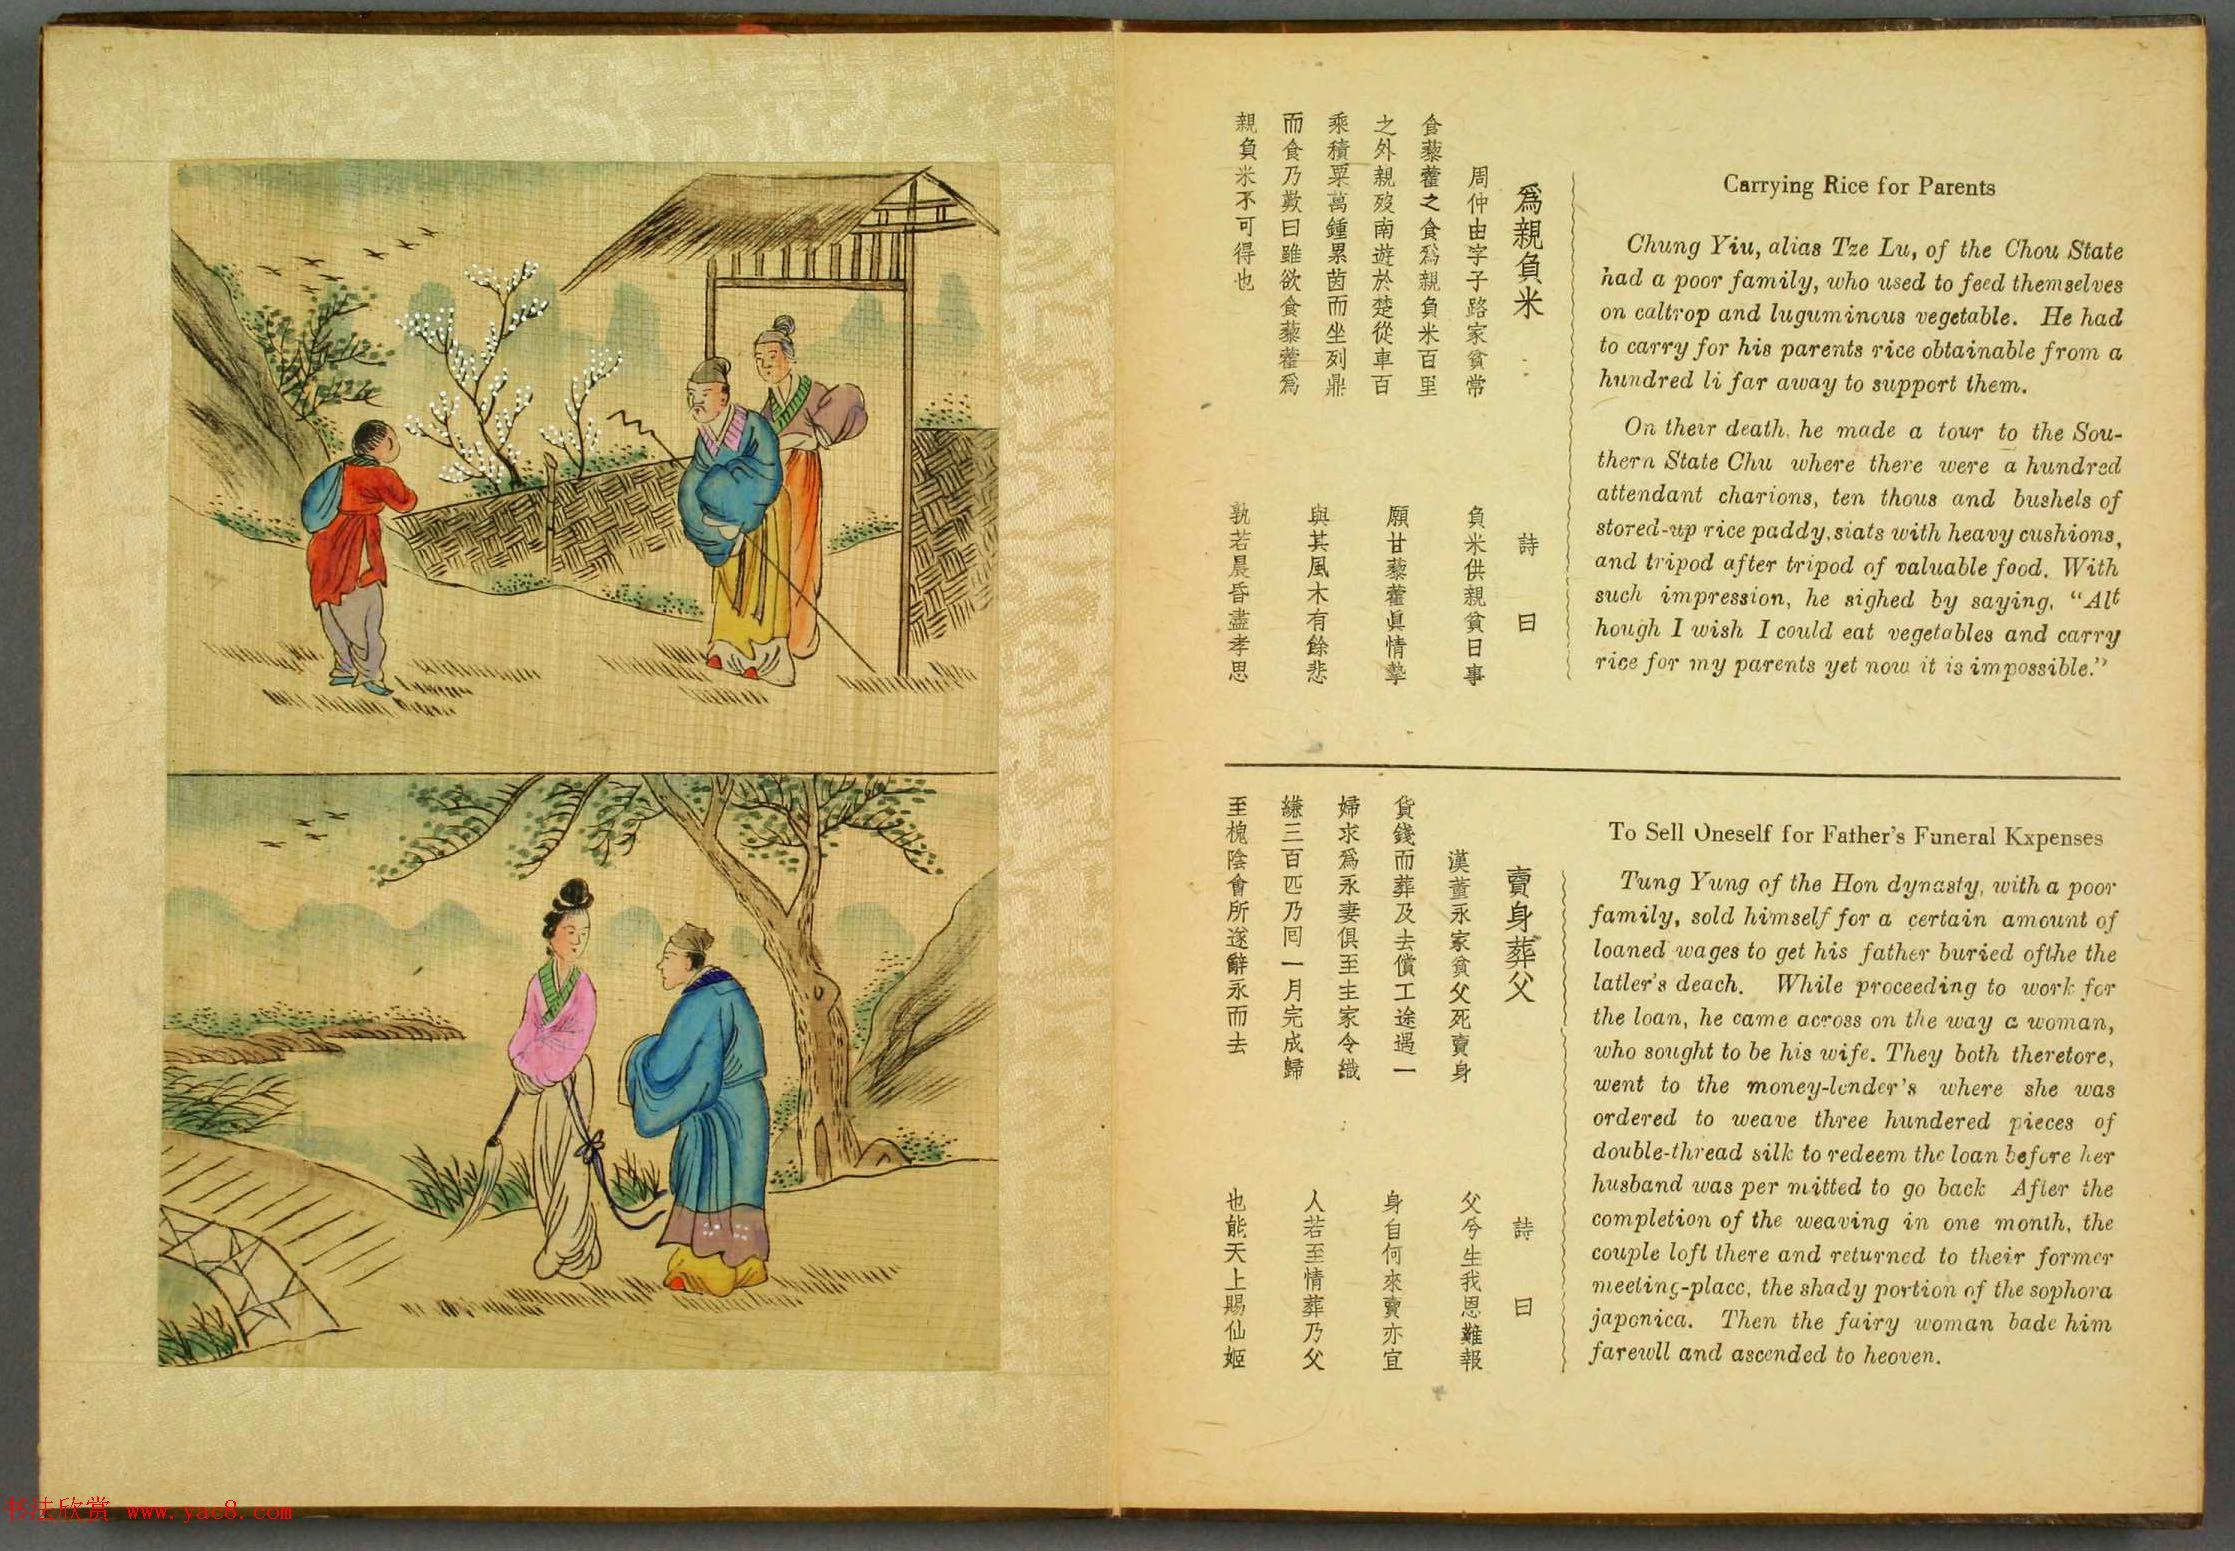 Carrying Rice for Parents
Chung Yiu, alias Tze Lu, of the Chou State
had a poor family, who used to feed themselves
on caltrop and luguminous vegetable. He had
to carry for his parents rice obtainable from a
hundred li far away to support them.
On their death, he made a tour to the Sou-
thern State Chu where there were a hundred
attendant charions, ten thous and bushels of
stored-up rice paddy, siats with heavy cushions,
and tripod after tripod of valuable food. With
such impression, he sighed by saying, "Alt
hough I wish I could eat vegetables and carry
rice for my parents yet now it is impossible."
爲親負米
周仲由字子路家貧常
食藜藿之食爲親負米百里
之外親歿南遊於楚從車百
乘積粟萬鍾累茵而坐列鼎
而食乃歎曰雖欲食藜藿爲
親負米不可得也
詩曰
負米供親貧日事
願甘藜藿眞情摯
與其風木有餘悲
孰若晨昏盡孝思
To Sell Oneself for Father's Funeral Kxpenses
Tung Yung of the Hon dynasty, with a poor
family, sold himself for a certain amount of
loaned wages to get his father buried ofthe the
latler's deach. While proceeding to work for
the loan, he came across on the way a woman,
who sought to be his wife. They both theretore,
went to the money-lender's where she was
ordered to weave three hundered pieces of
double-thread silk to redeem the loan before her
husband was per mitted to go back After the
completion of the weaving in one month, the
couple loft there and returned to their former
meeting-place, the shady portion of the sophora
japonica. Then the fairy woman bade him
farewll and ascended to heoven.
賣身葬父
漢董永家貧父死賣身
貨錢而葬及去償工途遇一
婦求爲永妻俱至主家令織
縑三百匹乃囘一月完成歸
至槐陰會所遂辭永而去
詩曰
父兮生我恩難報
身自何來賣亦宜
人若至情葬乃父
也能天上賜仙姬
书法欣赏 www.yac8.com